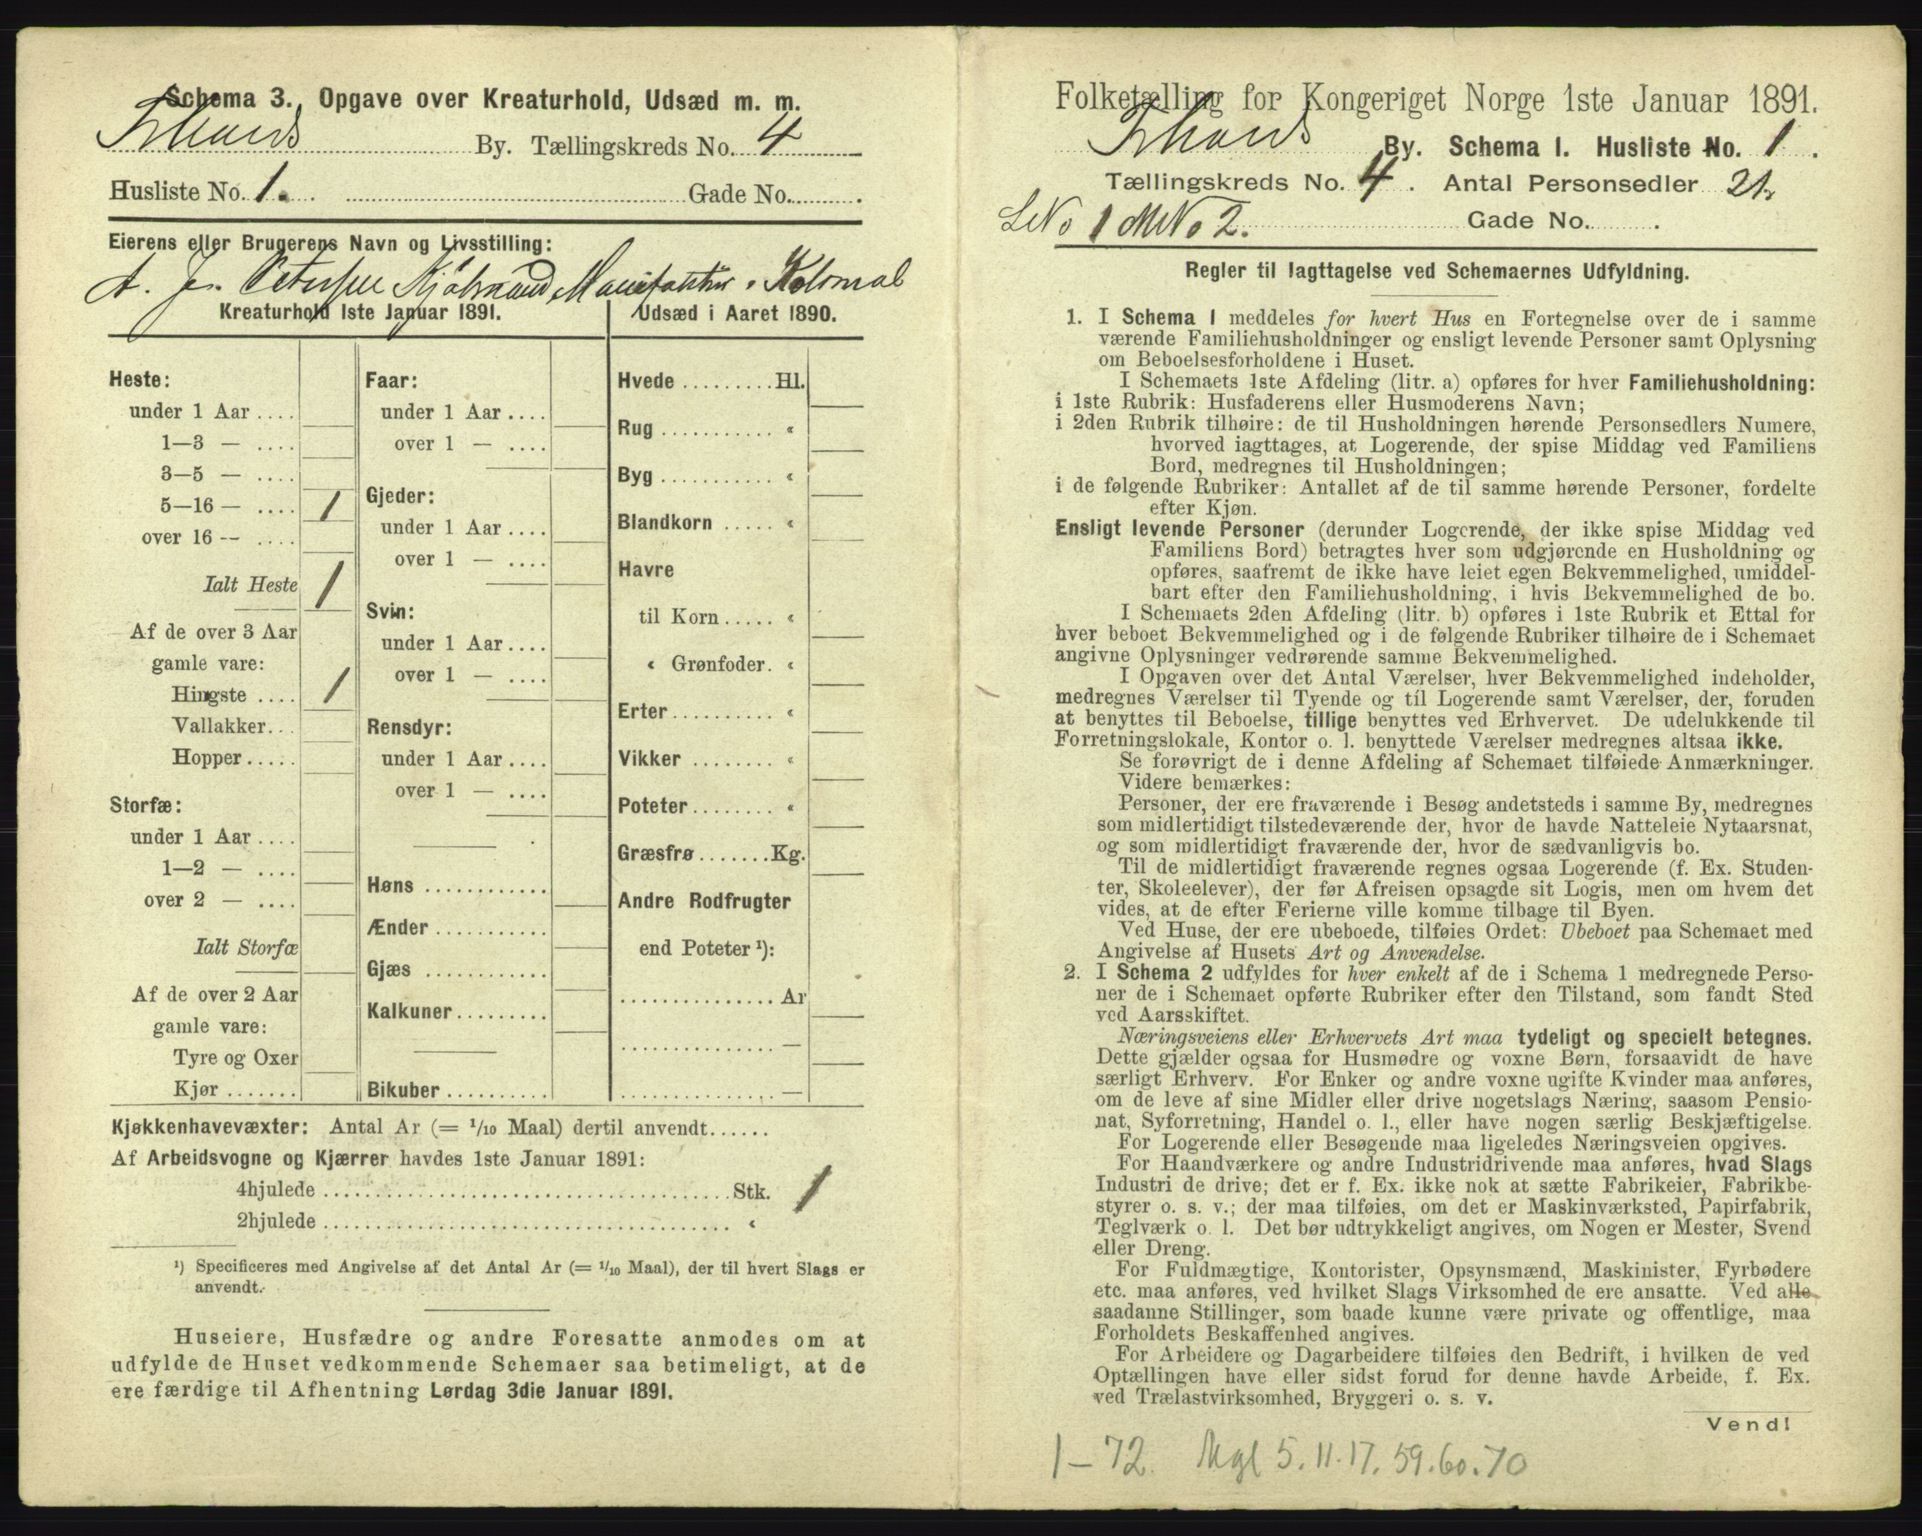 Schema 3. Opgave over Kreaturhold, Udsæd m. m.
Trhards By. Tællingskreds No. 4
Husliste No. 1. Gade No.
Eierens eller Brugerens Navn og Livsstilling:
A. Petersen Kjøbmand Manifaktur Kolonial
Kreaturhold 1ste Januar 1891.
Heste:
under 1 Aar ....
1—3 — ....
3—5 — ....
5—16 — .... 1
over 16 — ....
Ialt Heste 1
Af de over 3 Aar
gamle vare:
Hingste .... 1
Vallakker...
Hopper .....
Storfæ:
under 1 Aar ....
1—2 — ....
over 2 — ....
Ialt Storfæ
Af de over 2 Aar
gamle vare:
Tyre og Oxer
Kjør .......
Faar:
under 1 Aar ....
over 1 — ....
Gjeder:
under 1 Aar ....
over 1 — ....
Svin:
under 1 Aar ....
over 1 — ....
Rensdyr:
under 1 Aar ....
over 1 — ....
Høns ............
Ænder ...........
Gjæs ............
Kalkuner .........
Bikuber ..........
Udsæd i Aaret 1890.
Hvede ......... Hl.
Rug ........... «
Byg ........... «
Blandkorn ..... «
Havre
til Korn ..... «
« Grønfoder. «
Erter .......... «
Vikker ........ «
Poteter ........ «
Græsfrø ....... Kg.
Andre Rodfrugter
end Poteter ¹):
............... Ar
............... —
............... —
Kjøkkenhavevæxter: Antal Ar (= 1/10 Maal) dertil anvendt......
Af Arbeidsvogne og Kjærrer havdes 1ste Januar 1891:
4hjulede ........ Stk. 1
2hjulede ........ «
¹) Specificeres med Angivelse af det Antal Ar (= 1/10 Maal), der til hvert Slags er
anvendt.
Huseiere, Husfædre og andre Foresatte anmodes om at
udfylde de Huset vedkommende Schemaer saa betimeligt, at de
ere færdige til Afhentning Lørdag 3die Januar 1891.
Folketælling for Kongeriget Norge 1ste Januar 1891.
Trhards By. Schema I. Husliste No. 1.
Tællingskreds No. 4. Antal Personsedler 21.
LNo 1 MNo 2. Gade No.
Regler til Iagttagelse ved Schemaernes Udfyldning.
1. I Schema I meddeles for hvert Hus en Fortegnelse over de i samme
værende Familiehusholdninger og ensligt levende Personer samt Oplysning
om Beboelsesforholdene i Huset.
I Schemaets 1ste Afdeling (litr. a) opføres for hver Familiehusholdning:
i 1ste Rubrik: Husfaderens eller Husmoderens Navn;
i 2den Rubrik tilhøire: de til Husholdningen hørende Personsedlers Numere,
hvorved iagttages, at Logerende, der spise Middag ved Familiens
Bord, medregnes til Husholdningen;
i de følgende Rubriker: Antallet af de til samme hørende Personer, fordelte
efter Kjøn.
Ensligt levende Personer (derunder Logerende, der ikke spise Middag ved
Familiens Bord) betragtes hver som udgjørende en Husholdning og
opføres, saafremt de ikke have leiet egen Bekvemmelighed, umiddel-
bart efter den Familiehusholdning, i hvis Bekvemmelighed de bo.
I Schemaets 2den Afdeling (litr. b) opføres i 1ste Rubrik et Ettal for
hver beboet Bekvemmelighed og i de følgende Rubriker tilhøire de i Schemaet
angivne Oplysninger vedrørende samme Bekvemmelighed.
I Opgaven over det Antal Værelser, hver Bekvemmelighed indeholder,
medregnes Værelser til Tyende og til Logerende samt Værelser, der, foruden
at benyttes til Beboelse, tillige benyttes ved Erhvervet. De udelukkende til
Forretningslokale, Kontor o. l. benyttede Værelser medregnes altsaa ikke.
Se forøvrigt de i denne Afdeling af Schemaet tilføiede Anmærkninger.
Videre bemærkes:
Personer, der ere fraværende i Besøg andetsteds i samme By, medregnes
som midlertidigt tilstedeværende der, hvor de havde Natteleie Nytaarsnat,
og som midlertidigt fraværende der, hvor de sædvanligvis bo.
Til de midlertidigt fraværende regnes ogsaa Logerende (f. Ex. Studen-
ter, Skoleelever), der før Afreisen opsagde sit Logis, men om hvem det
vides, at de efter Ferierne ville komme tilbage til Byen.
Ved Huse, der ere ubeboede, tilføies Ordet: Ubeboet paa Schemaet med
Angivelse af Husets Art og Anvendelse.
2. I Schema 2 udfyldes for hver enkelt af de i Schema 1 medregnede Perso-
ner de i Schemaet opførte Rubriker efter den Tilstand, som fandt Sted
ved Aarsskiftet.
Næringsveiens eller Erhvervets Art maa tydeligt og specielt betegnes.
Dette gjælder ogsaa for Husmødre og voxne Børn, forsaavidt de have
særligt Erhverv. For Enker og andre voxne ugifte Kvinder maa anføres,
om de leve af sine Midler eller drive nogetslags Næring, saasom Pensio-
nat, Syforretning, Handel o. l., eller have nogen særlig Beskjæftigelse.
For Logerende eller Besøgende maa ligeledes Næringsveien opgives.
For Haandværkere og andre Industridrivende maa anføres, hvad Slags
Industri de drive; det er f. Ex. ikke nok at sætte Fabrikeier, Fabrikbe-
styrer o. s. v.; der maa tilføies, om det er Maskinværksted, Papirfabrik,
Teglværk o. l. Det bør udtrykkeligt angives, om Nogen er Mester, Svend
eller Dreng.
For Fuldmægtige, Kontorister, Opsynsmænd, Maskinister, Fyrbødere
etc. maa anføres, ved hvilket Slags Virksomhed de ere ansatte. Ved alle
saadanne Stillinger, som baade kunne være private og offentlige, maa
Forholdets Beskaffenhed angives.
For Arbeidere og Dagarbeidere tilføies den Bedrift, i hvilken de ved
Optællingen have eller sidst forud for denne havde Arbeide, f. Ex.
ved Trælastvirksomhed, Bryggeri o. s. v.
Vend!
1-72. Mgl 5.11.17.59.60.70